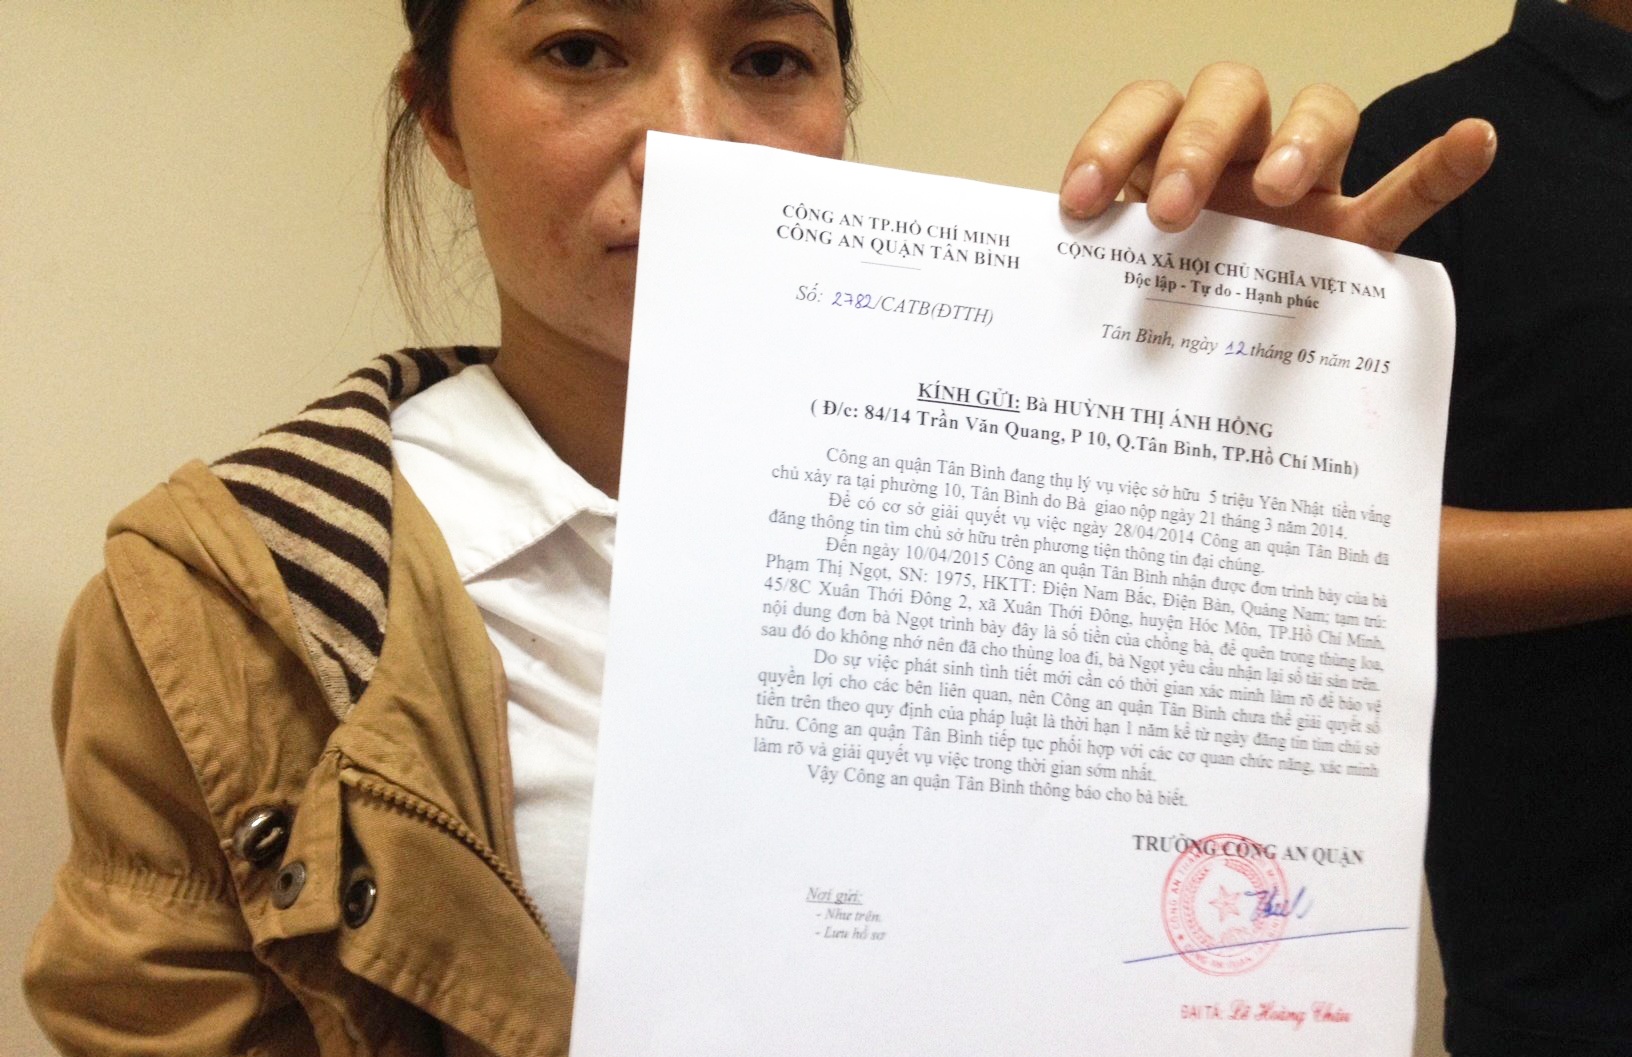 CÔNG AN TP.HỒ CHÍ MINH
CÔNG AN QUẬN TÂN BÌNH
CỘNG HÒA XÃ HỘI CHỦ NGHĨA VIỆT NAM
Độc lập - Tự do - Hạnh phúc
Số: 2782/CATB(ĐTTH)
Tân Bình, ngày 12 tháng 05 năm 2015
KÍNH GỬI: Bà HUỲNH THỊ ÁNH HỒNG
( Đ/c: 84/14 Trần Văn Quang, P 10, Q.Tân Bình, TP.Hồ Chí Minh)
Công an quận Tân Bình đang thụ lý vụ việc sở hữu 5 triệu Yên Nhật tiền vắng
chủ xảy ra tại phường 10, Tân Bình do Bà giao nộp ngày 21 tháng 3 năm 2014.
Để có cơ sở giải quyết vụ việc ngày 28/04/2014 Công an quận Tân Bình đã
đăng thông tin tìm chủ sở hữu trên phương tiện thông tin đại chúng.
Đến ngày 10/04/2015 Công an quận Tân Bình nhận được đơn trình bày của bà
Phạm Thị Ngọt, SN: 1975, HKTT: Điện Nam Bắc, Điện Bàn, Quảng Nam; tạm trú:
45/8C Xuân Thới Đông 2, xã Xuân Thới Đông, huyện Hóc Môn, TP.Hồ Chí Minh,
nội dung đơn bà Ngọt trình bày đây là số tiền của chồng bà, để quên trong thùng loa,
sau đó do không nhớ nên đã cho thùng loa đi, bà Ngọt yêu cầu nhận lại số tài sản trên.
Do sự việc phát sinh tình tiết mới cần có thời gian xác minh làm rõ để bảo vệ
quyền lợi cho các bên liên quan, nên Công an quận Tân Bình chưa thể giải quyết số
tiền trên theo quy định của pháp luật là thời hạn 1 năm kể từ ngày đăng tin tìm chủ sở
hữu. Công an quận Tân Bình tiếp tục phối hợp với các cơ quan chức năng, xác minh
làm rõ và giải quyết vụ việc trong thời gian sớm nhất.
Vậy Công an quận Tân Bình thông báo cho bà biết.
TRƯỞNG CÔNG AN QUẬN
Nơi gửi:
- Như trên
- Lưu hồ sơ
ĐẠI TÁ: Lê Hoàng Châu